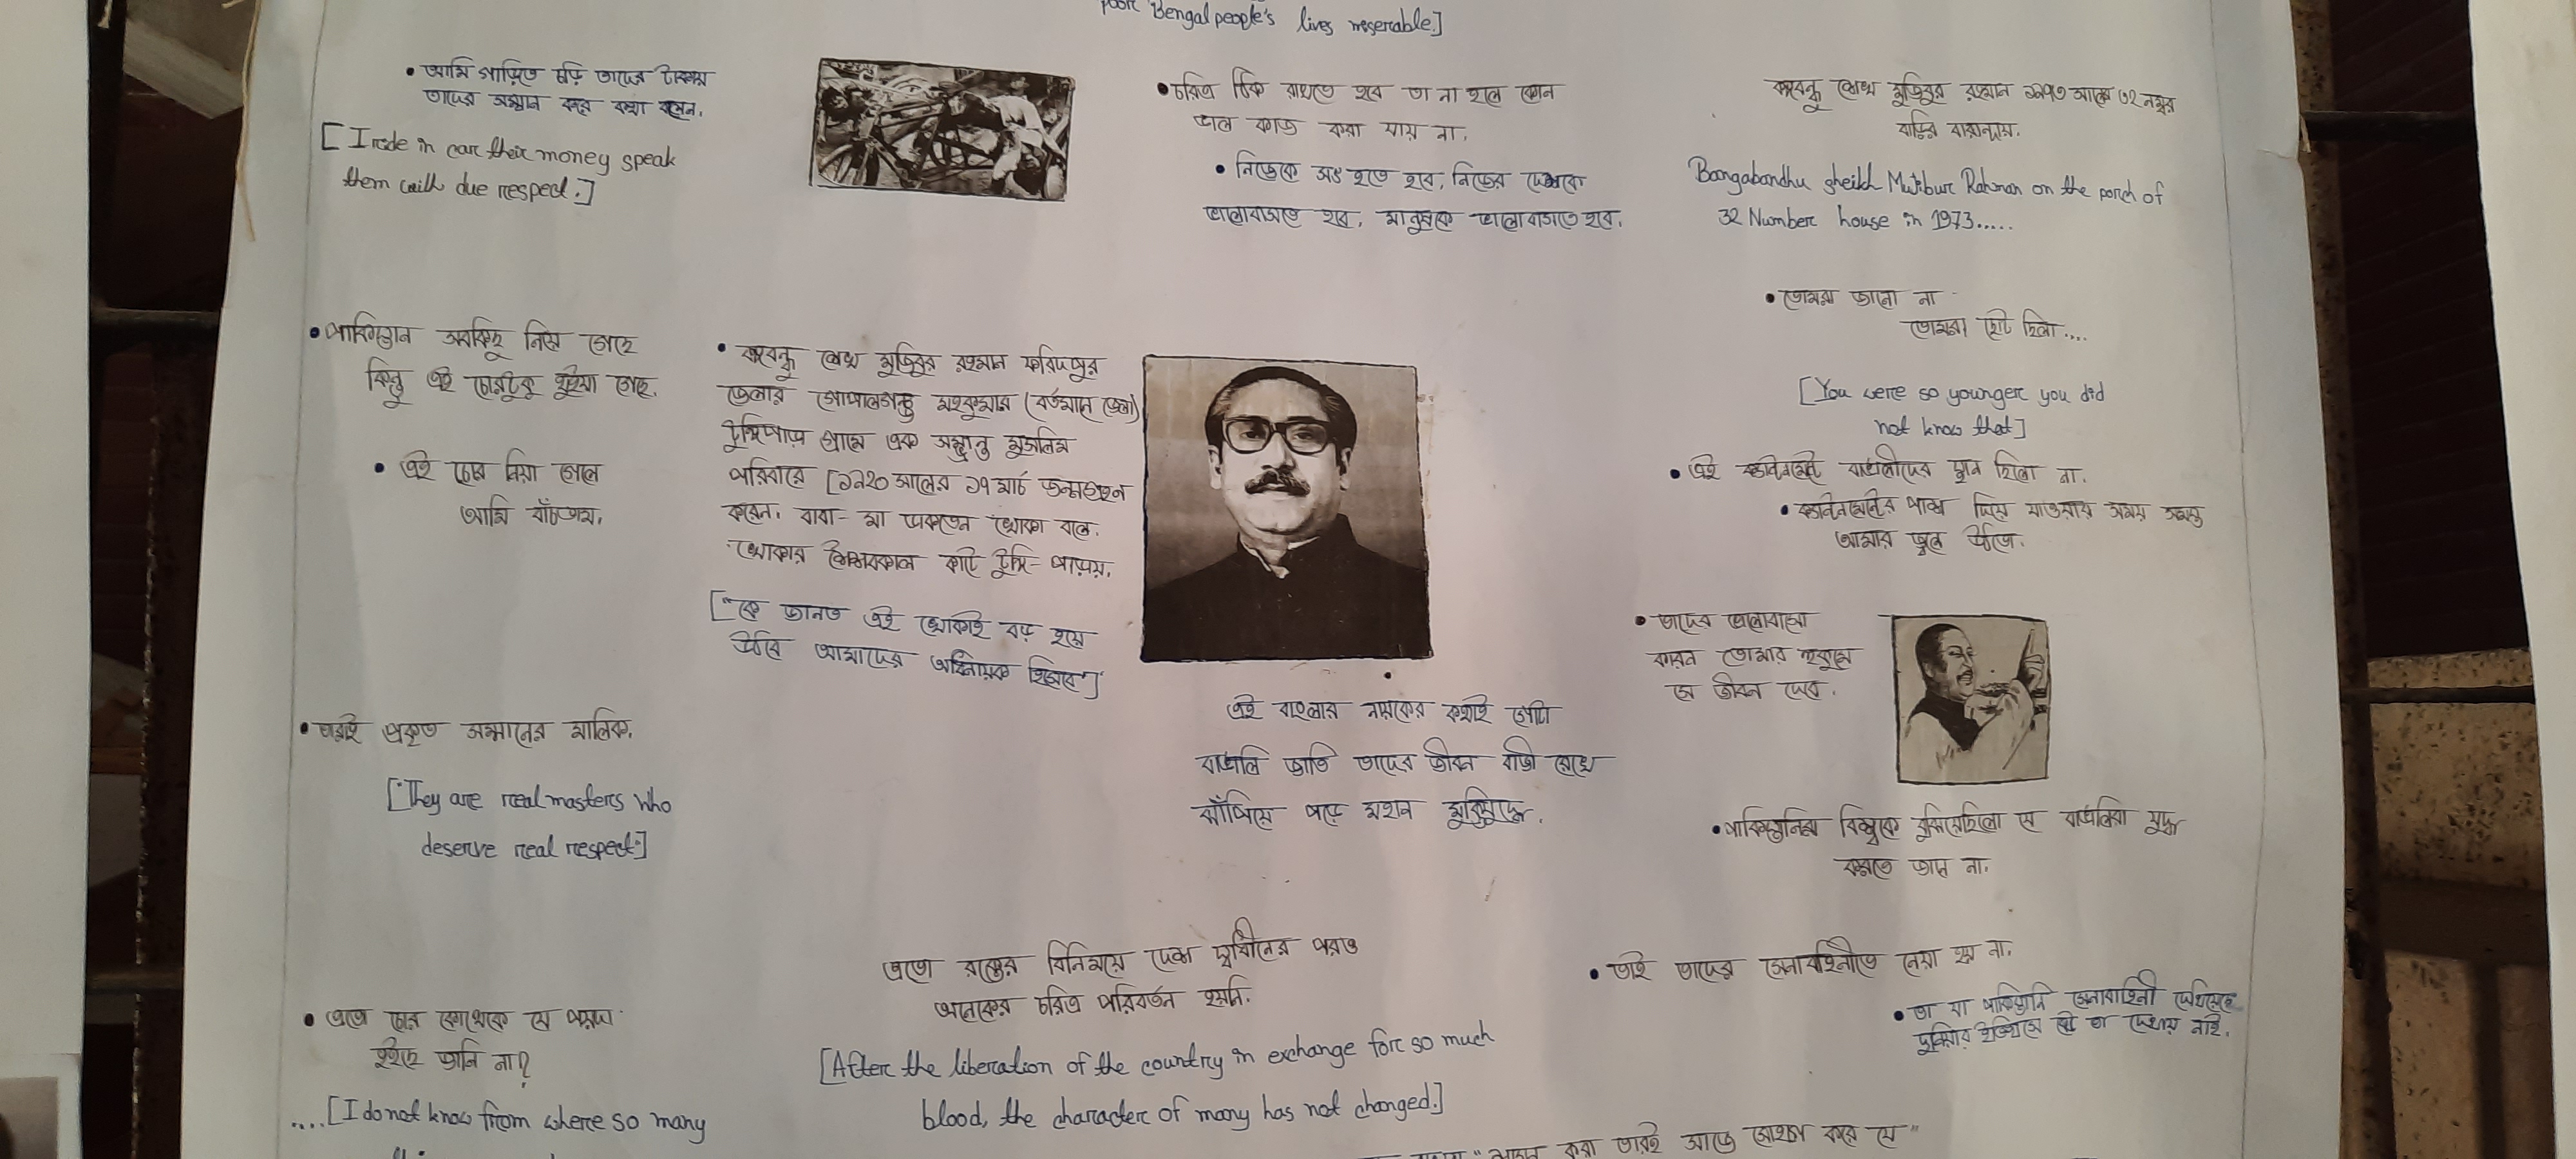 poor Bengal people's lives meserable.]
• আমি গাড়িতে চড়ি তাদের টাকায়
তাদের সম্মান করে কথা বলেন.
[I ride in car their money speak
them with due respect.]
• চরিত্র ঠিক রাখতে হবে তা না হলে কোন
ভাল কাজ করা যায় না.
• নিজেকে সৎ হতে হবে, নিজের দেশকে
ভালোবাসতে হবে, মানুষকে ভালোবাসতে হবে.
বঙ্গবন্ধু শেখ মুজিবুর রহমান ১৯৭৩ সালে ৩২ নম্বর
বাড়ির বারান্দায়.
Bangabandhu sheikh Mujibur Rahman on the porch of
32 Number house in 1973.....
• তোমরা জানো না
তোমরা ছোট ছিলা....
[You were so younger you did
not know that]
• এই ক্যান্টনমেন্টে বাঙালীদের স্থান ছিলো না.
• ক্যান্টনমেন্টের পাশ দিয়ে যাওয়ার সময় সমস্ত
আমার জ্বলে উঠতো.
• পাকিস্তান সবকিছু নিয়ে গেছে
কিন্তু এই চোরটুকু থুইয়া গেছে.
• এই চোর নিয়া গেলে
আমি বাঁচতাম.
• বঙ্গবন্ধু শেখ মুজিবুর রহমান ফরিদপুর
জেলার গোপালগঞ্জ মহকুমার (বর্তমানে জেলা)
টুঙ্গিপাড়া গ্রামে এক সম্ভ্রান্ত মুসলিম
পরিবারে [১৯২০ সালের ১৭ মার্চ জন্মগ্রহন
করেন. বাবা-মা ডাকতেন খোকা বলে.
খোকার শৈশবকাল কাটে টুঙ্গি-পাড়ায়.
["কে জানত এই খোকাই বড় হয়ে
উঠবে আমাদের অধিনায়ক হিসেবে"]
• তাদের ভালোবাসো
কারন তোমার হুকুমে
সে জীবন দেবে.
• তারাই প্রকৃত সম্মানের মালিক.
["They are real masters who
deserve real respect"]
এই বাংলার নায়কের কথাই গোটা
বাঙালি জাতি তাদের জীবন বাজী রেখে
ঝাঁপিয়ে পড়ে মহান মুক্তিযুদ্ধে.
• পাকিস্তানিরা বিশ্বকে বুঝিয়েছিলো যে বাঙালিরা যুদ্ধ
করতে জানে না.
• তাই তাদের সেনাবাহিনীতে নেয়া হয় না.
• তা যা পাকিস্তানি সেনাবাহিনী দেখিয়েছে
দুনিয়ার ইতিহাসে কেউ তা দেখায় নাই.
এতো রক্তের বিনিময়ে দেশ স্বাধীনের পরও
অনেকের চরিত্র পরিবর্তন হয়নি.
[After the liberation of the country in exchange for so much
blood, the character of many has not changed.]
• এতো চোর কোথেকে যে পয়দা
হইছে জানি না?
....[I do not know from where so many
করা তারই সাজে সোহাগ করে যে"